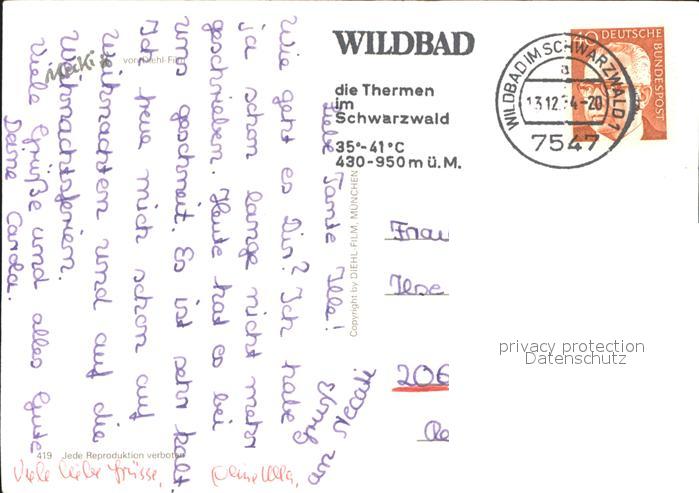 Liebe Tante Ille!
Wie geht es Dir? Ich habe
ja schon lange nicht mehr
geschrieben. Heute hat es bei
uns geschneit. Es ist sehr kalt.
Ich freue mich schon auf
Weihnachten und auf die
Weihnachtsferien.
Viele Grüße und alles Gute
Deine Carola.
Gruß
an Mecki
Mecki
von Diehl-Film
WILDBAD
die Thermen
im
Schwarzwald
35°-41°C
430-950 m ü.M.
WILDBAD IM SCHWARZWALD 1
a
13.12.74-20
7547
40 DEUTSCHE
BUNDESPOST
Copyright by DIEHL-FILM, MÜNCHEN
Frau
Ilse
206
privacy protection
Datenschutz
419 Jede Reproduktion verboten
Viele liebe Grüsse,